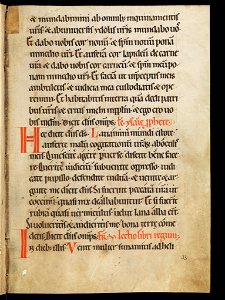 & mundabimini ab omnib; inquinamentis
uris. & ab uniuersis ydolis uris mundabo uos.
Et dabo uobis cor nouū. & spm nouū ponā
in medio uri. Et auferā cor lapideū de carne
ura. & dabo uobis cor carneū. & spm meū po
nam in medio uri. Et faciā ut in p̄ceptis meis
ambuletis. & iudicia mea custodiatis & ope
remini. Et habitabitis in terra quā dedi patri
bus uris. & eritis m in pplm. & ego ero uo
bis in dm. dicit dns omps. ysaie pphete.
Hec dicit dns ds. Lauamini mundi estote.
auferte malū cogitationū urarū ab oculis
meis. Quiescite agere peruerse. discite bene face
re. Querite iudiciū. subuenite oppresso. iudi
cate pupillo. defendite uiduā. & uenite & argu
ite me dicit dns. Si fuerint peccata ura ut
coccinū. quasi nix dealbabuntur. Et si fuerint
rubra quasi uermiculus. uelut lana alba erūt.
Si uolueritis & audieritis me. bona terre come
detis. dicit dns omps. Lectio libri regum.
In dieb; illis. Venit mulier sunamitis ad heli